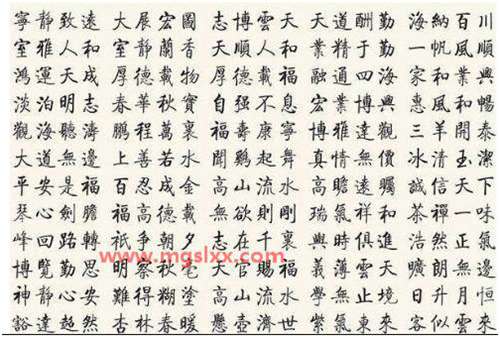 寧靜致遠 大展宏圖 志博雲天 天道酬勤 海納百川
室雅人和 室靜蘭香 大順人和 業精于勤 一帆風順
鴻運天成 厚德載物 厚德載福 融通四海 家和業興
淡泊明志 春華秋實 自强不息 宏業博興 惠風和暢
觀海聽濤 鵬程萬裏 福壽康寧 博雅達觀 三羊開泰
大道無邊 上善若水 聞鷄起舞 真情無價 冰清玉潔
平安是福 百忍成金 高山流水 高瞻遠矚 誠信天下
琴心劍膽 福高德載 無欲則剛 瑞氣祥和 茶禪一味
峰回路轉 祇争朝夕 志在千裏 與時俱進 浩然正氣
www.mgslxx.com
博覽勤思 明察秋毫 天官賜福 義薄雲天 無邊
神静心安 難得糊塗 高山流水 學無止境 日升月恒
豁達超然 杏林春暖 懸壺濟世 紫氣東來 客似雲來